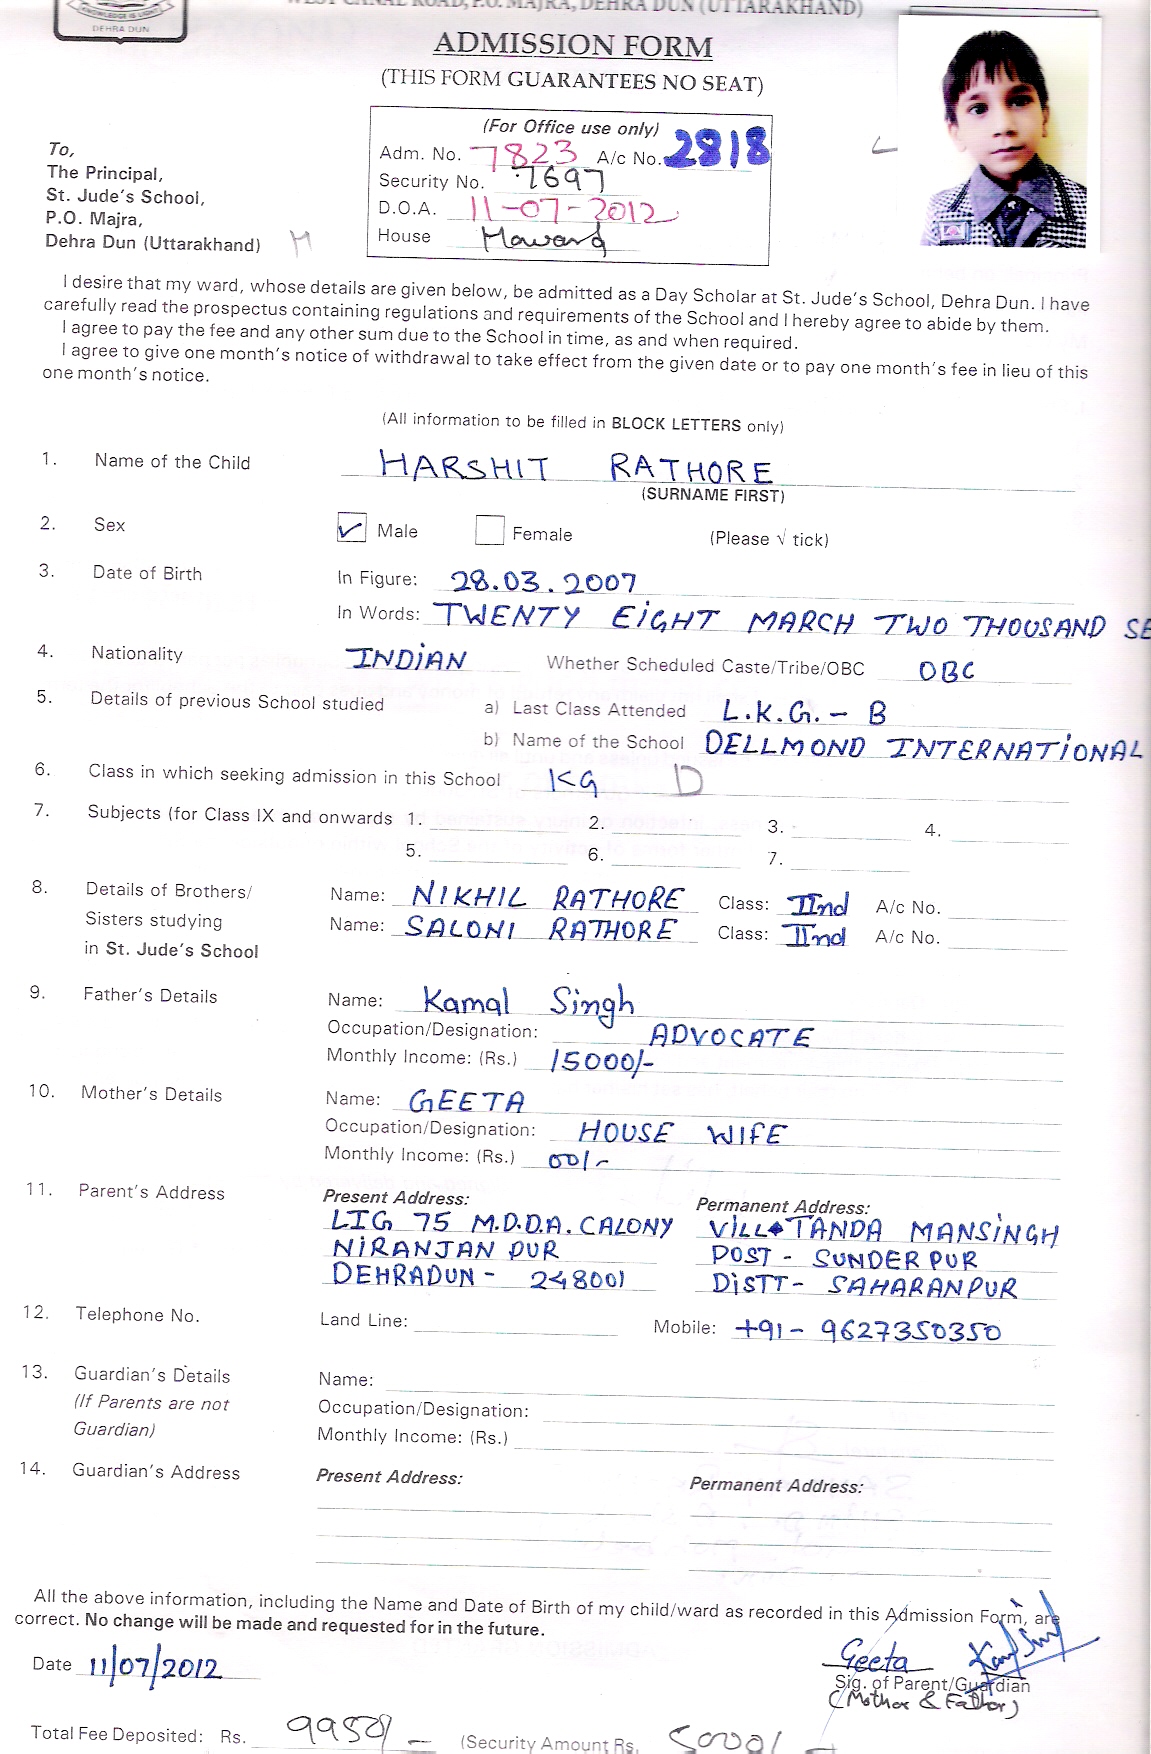 WEST CANAL ROAD, P.O. MAJRA, DEHRA DUN (UTTARAKHAND)
KNOWLEDGE IS LIGHT
DEHRA DUN
ADMISSION FORM
(THIS FORM GUARANTEES NO SEAT)
(For Office use only)
Adm. No. 7823 A/c No. 2818
Security No. 7697
D.O.A. 11-07-2012
House Howard
To,
The Principal,
St. Jude's School,
P.O. Majra,
Dehra Dun (Uttarakhand) M
I desire that my ward, whose details are given below, be admitted as a Day Scholar at St. Jude's School, Dehra Dun. I have
carefully read the prospectus containing regulations and requirements of the School and I hereby agree to abide by them.
I agree to pay the fee and any other sum due to the School in time, as and when required.
I agree to give one month's notice of withdrawal to take effect from the given date or to pay one month's fee in lieu of this
one month's notice.
(All information to be filled in BLOCK LETTERS only)
1. Name of the Child HARSHIT RATHORE
(SURNAME FIRST)
2. Sex ✓ Male Female (Please √ tick)
3. Date of Birth In Figure: 28.03.2007
In Words: TWENTY EIGHT MARCH TWO THOUSAND SE
4. Nationality INDIAN Whether Scheduled Caste/Tribe/OBC OBC
5. Details of previous School studied a) Last Class Attended L.K.G. - B
b) Name of the School DELLMOND INTERNATIONAL
6. Class in which seeking admission in this School KG D
7. Subjects (for Class IX and onwards 1. 2. 3. 4.
5. 6. 7.
8. Details of Brothers/ Name: NIKHIL RATHORE Class: IInd A/c No.
Sisters studying Name: SALONI RATHORE Class: IInd A/c No.
in St. Jude's School
9. Father's Details Name: Kamal Singh
Occupation/Designation: ADVOCATE
Monthly Income: (Rs.) 15000/-
10. Mother's Details Name: GEETA
Occupation/Designation: HOUSE WIFE
Monthly Income: (Rs.) 00/-
11. Parent's Address Present Address: Permanent Address:
LIG 75 M.D.D.A. CALONY VILL TANDA MANSINGH
NIRANJAN PUR POST - SUNDER PUR
DEHRADUN - 248001 DISTT - SAHARANPUR
12. Telephone No. Land Line: Mobile: +91 - 9627350350
13. Guardian's Details Name:
(If Parents are not Occupation/Designation:
Guardian) Monthly Income: (Rs.)
14. Guardian's Address Present Address: Permanent Address:
All the above information, including the Name and Date of Birth of my child/ward as recorded in this Admission Form, are
correct. No change will be made and requested for in the future.
Date 11/07/2012 Geeta
Sig. of Parent/Guardian
(Mother & Father)
Total Fee Deposited: Rs. 9950/- (Security Amount Rs. 5000/-